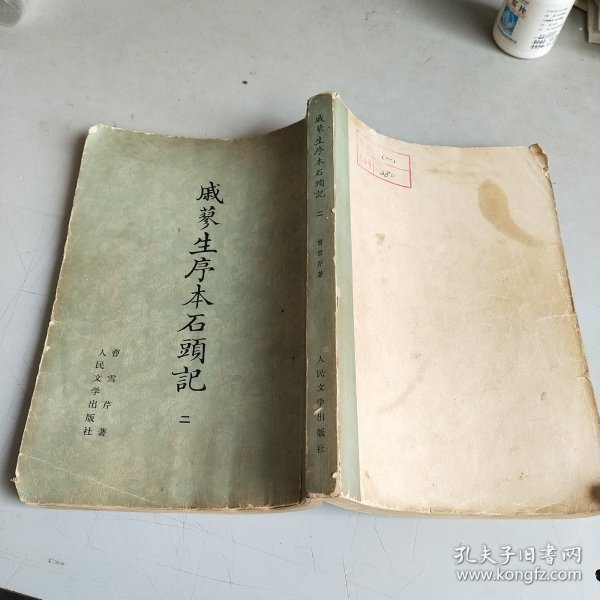 戚蓼生序本石頭記
二
曹雪芹著
人民文学出版社
戚蓼生序本石頭記
二
曹雪芹著
人民文学出版社
(一)
280
孔夫子旧书网
www.kongfz.com